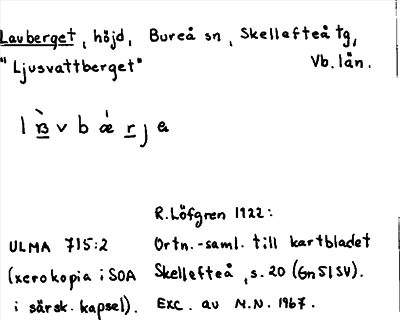 Lauberget, höjd, Bureå sn, Skellefteå tg,
"Ljusvattberget" Vb. län.
R. Löfgren 1922:
ULMA 715:2 Ortn.-saml. till kartbladet
(xerokopia i SOA Skellefteå, s. 20 (Gn51SV).
i särsk. kapsel). Exc. av N.N. 1967.